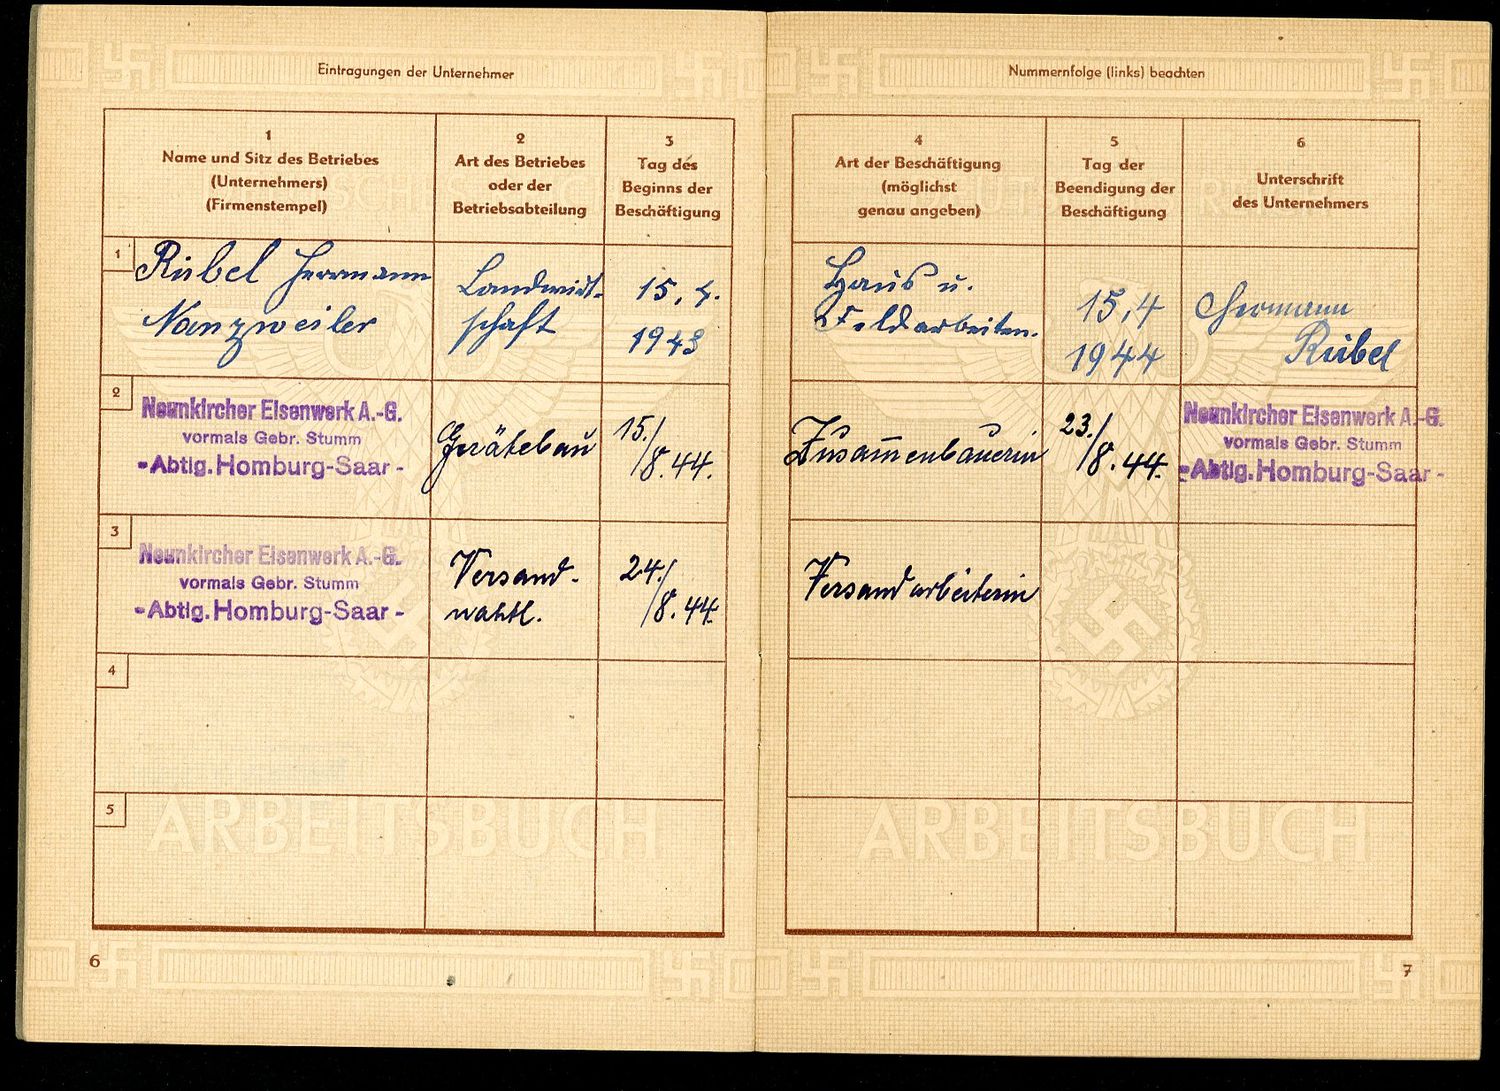 Eintragungen der Unternehmer
1
Name und Sitz des Betriebes
(Unternehmers)
(Firmenstempel)
2
Art des Betriebes
oder der
Betriebsabteilung
3
Tag des
Beginns der
Beschäftigung
1
Rübel Herrmann
Nanzweiler
Landwirt-
schaft
15. 4.
1943
2
Neunkircher Eisenwerk A.-G.
vormals Gebr. Stumm
- Abtlg. Homburg-Saar -
Gerätebau
15./
8. 44.
3
Neunkircher Eisenwerk A.-G.
vormals Gebr. Stumm
- Abtlg. Homburg-Saar -
Versand-
24./
8. 44.
4
5
ARBEITSBUCH
6
Nummernfolge (links) beachten
4
Art der Beschäftigung
(möglichst
genau angeben)
5
Tag der
Beendigung der
Beschäftigung
6
Unterschrift
des Unternehmers
Haus u.
Feldarbeiten.
15. 4
1944
Hermann
Rübel
Zusammenbauerin
23./
8. 44.
Neunkircher Eisenwerk A.-G.
vormals Gebr. Stumm
- Abtlg. Homburg-Saar -
Versandarbeiterin
ARBEITSBUCH
7